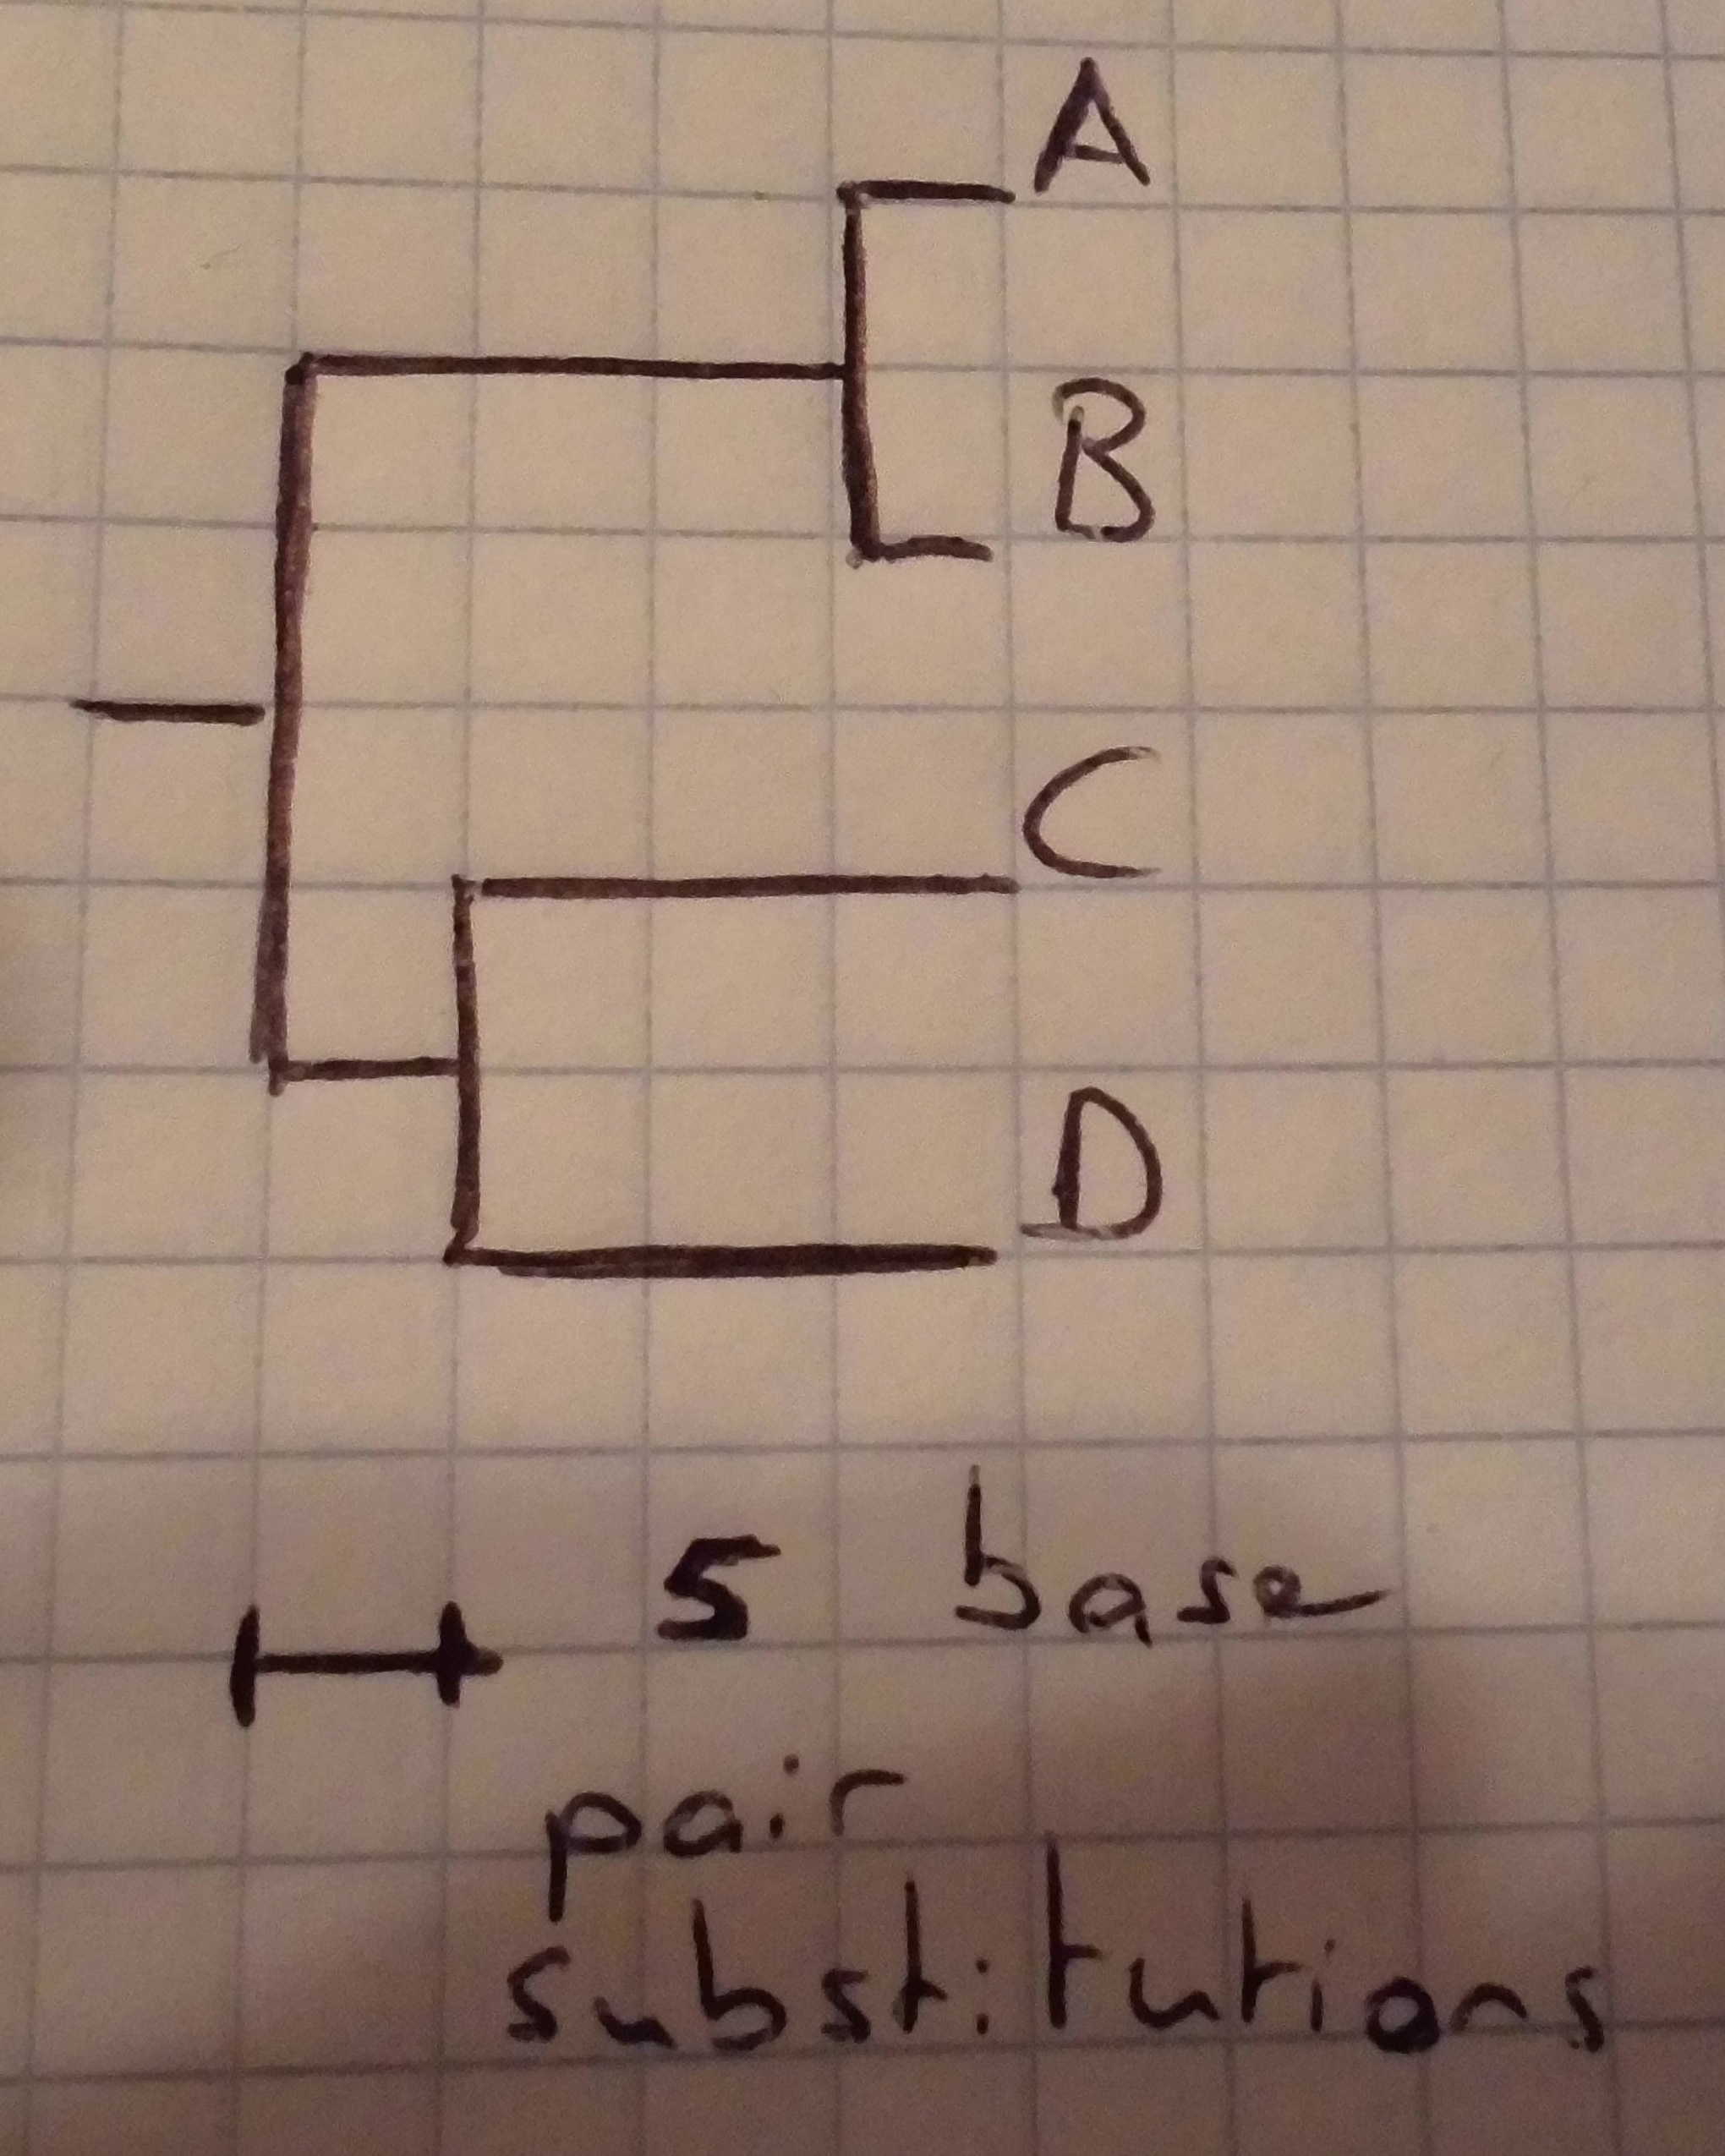 A
B
C
D
5 base
pair
substitutions